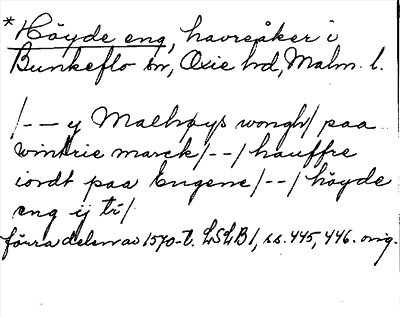 *Höyde eng, havreåker i
Bunkeflo sn, Oxie hd, Malm. l.
/-- y Malhøys wongh/ paa
wintrie marck/--/ hauffre
iordt paa Engene/--/ höyde
eng ij tr/
förra delen av 1570-t. LSLB 1, ss. 445, 446. orig.